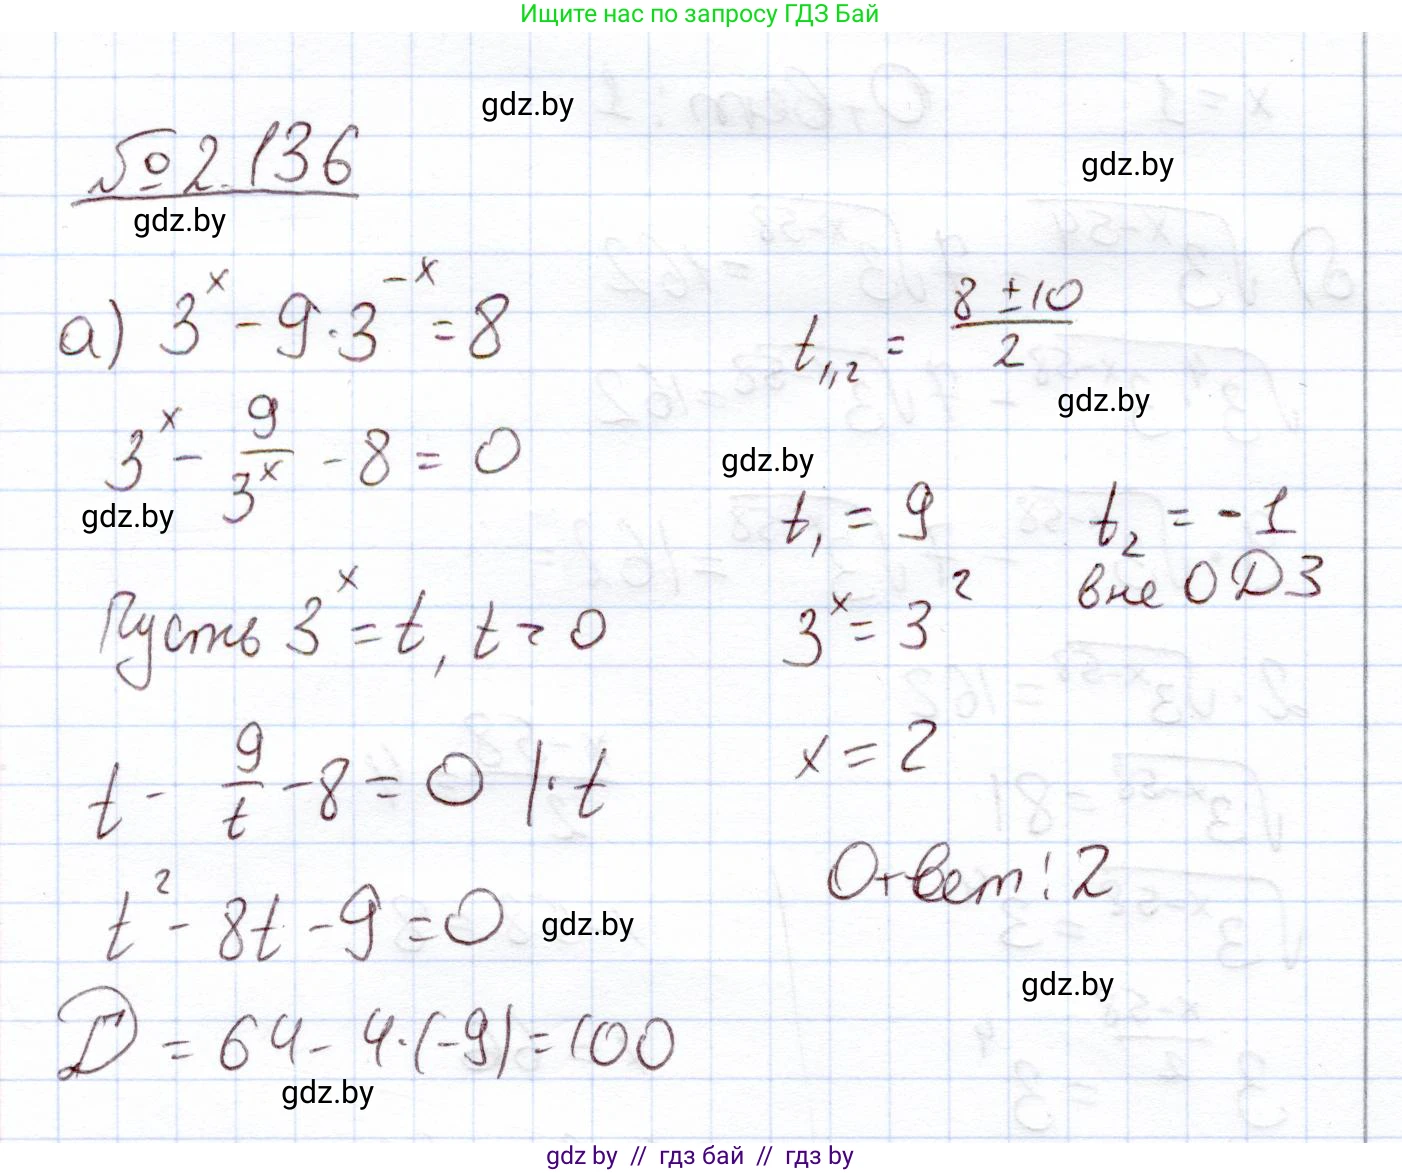 Ищите нас по запросу ГДЗ Бай
gdz.by
gdz.by
№ 2.136
gdz.by
а) 3^x - 9·3^{-x} = 8
3^x - 9/3^x - 8 = 0
gdz.by
Пусть 3^x = t, t > 0
t - 9/t - 8 = 0 |·t
t^2 - 8t - 9 = 0
gdz.by
D = 64 - 4·(-9) = 100
gdz.by
t_{1,2} = (8 ± 10)/2
gdz.by
gdz.by
t_1 = 9 t_2 = -1
вне ОДЗ
3^x = 3^2
x = 2
Ответ: 2
gdz.by
gdz by // гдз бай // гдз by